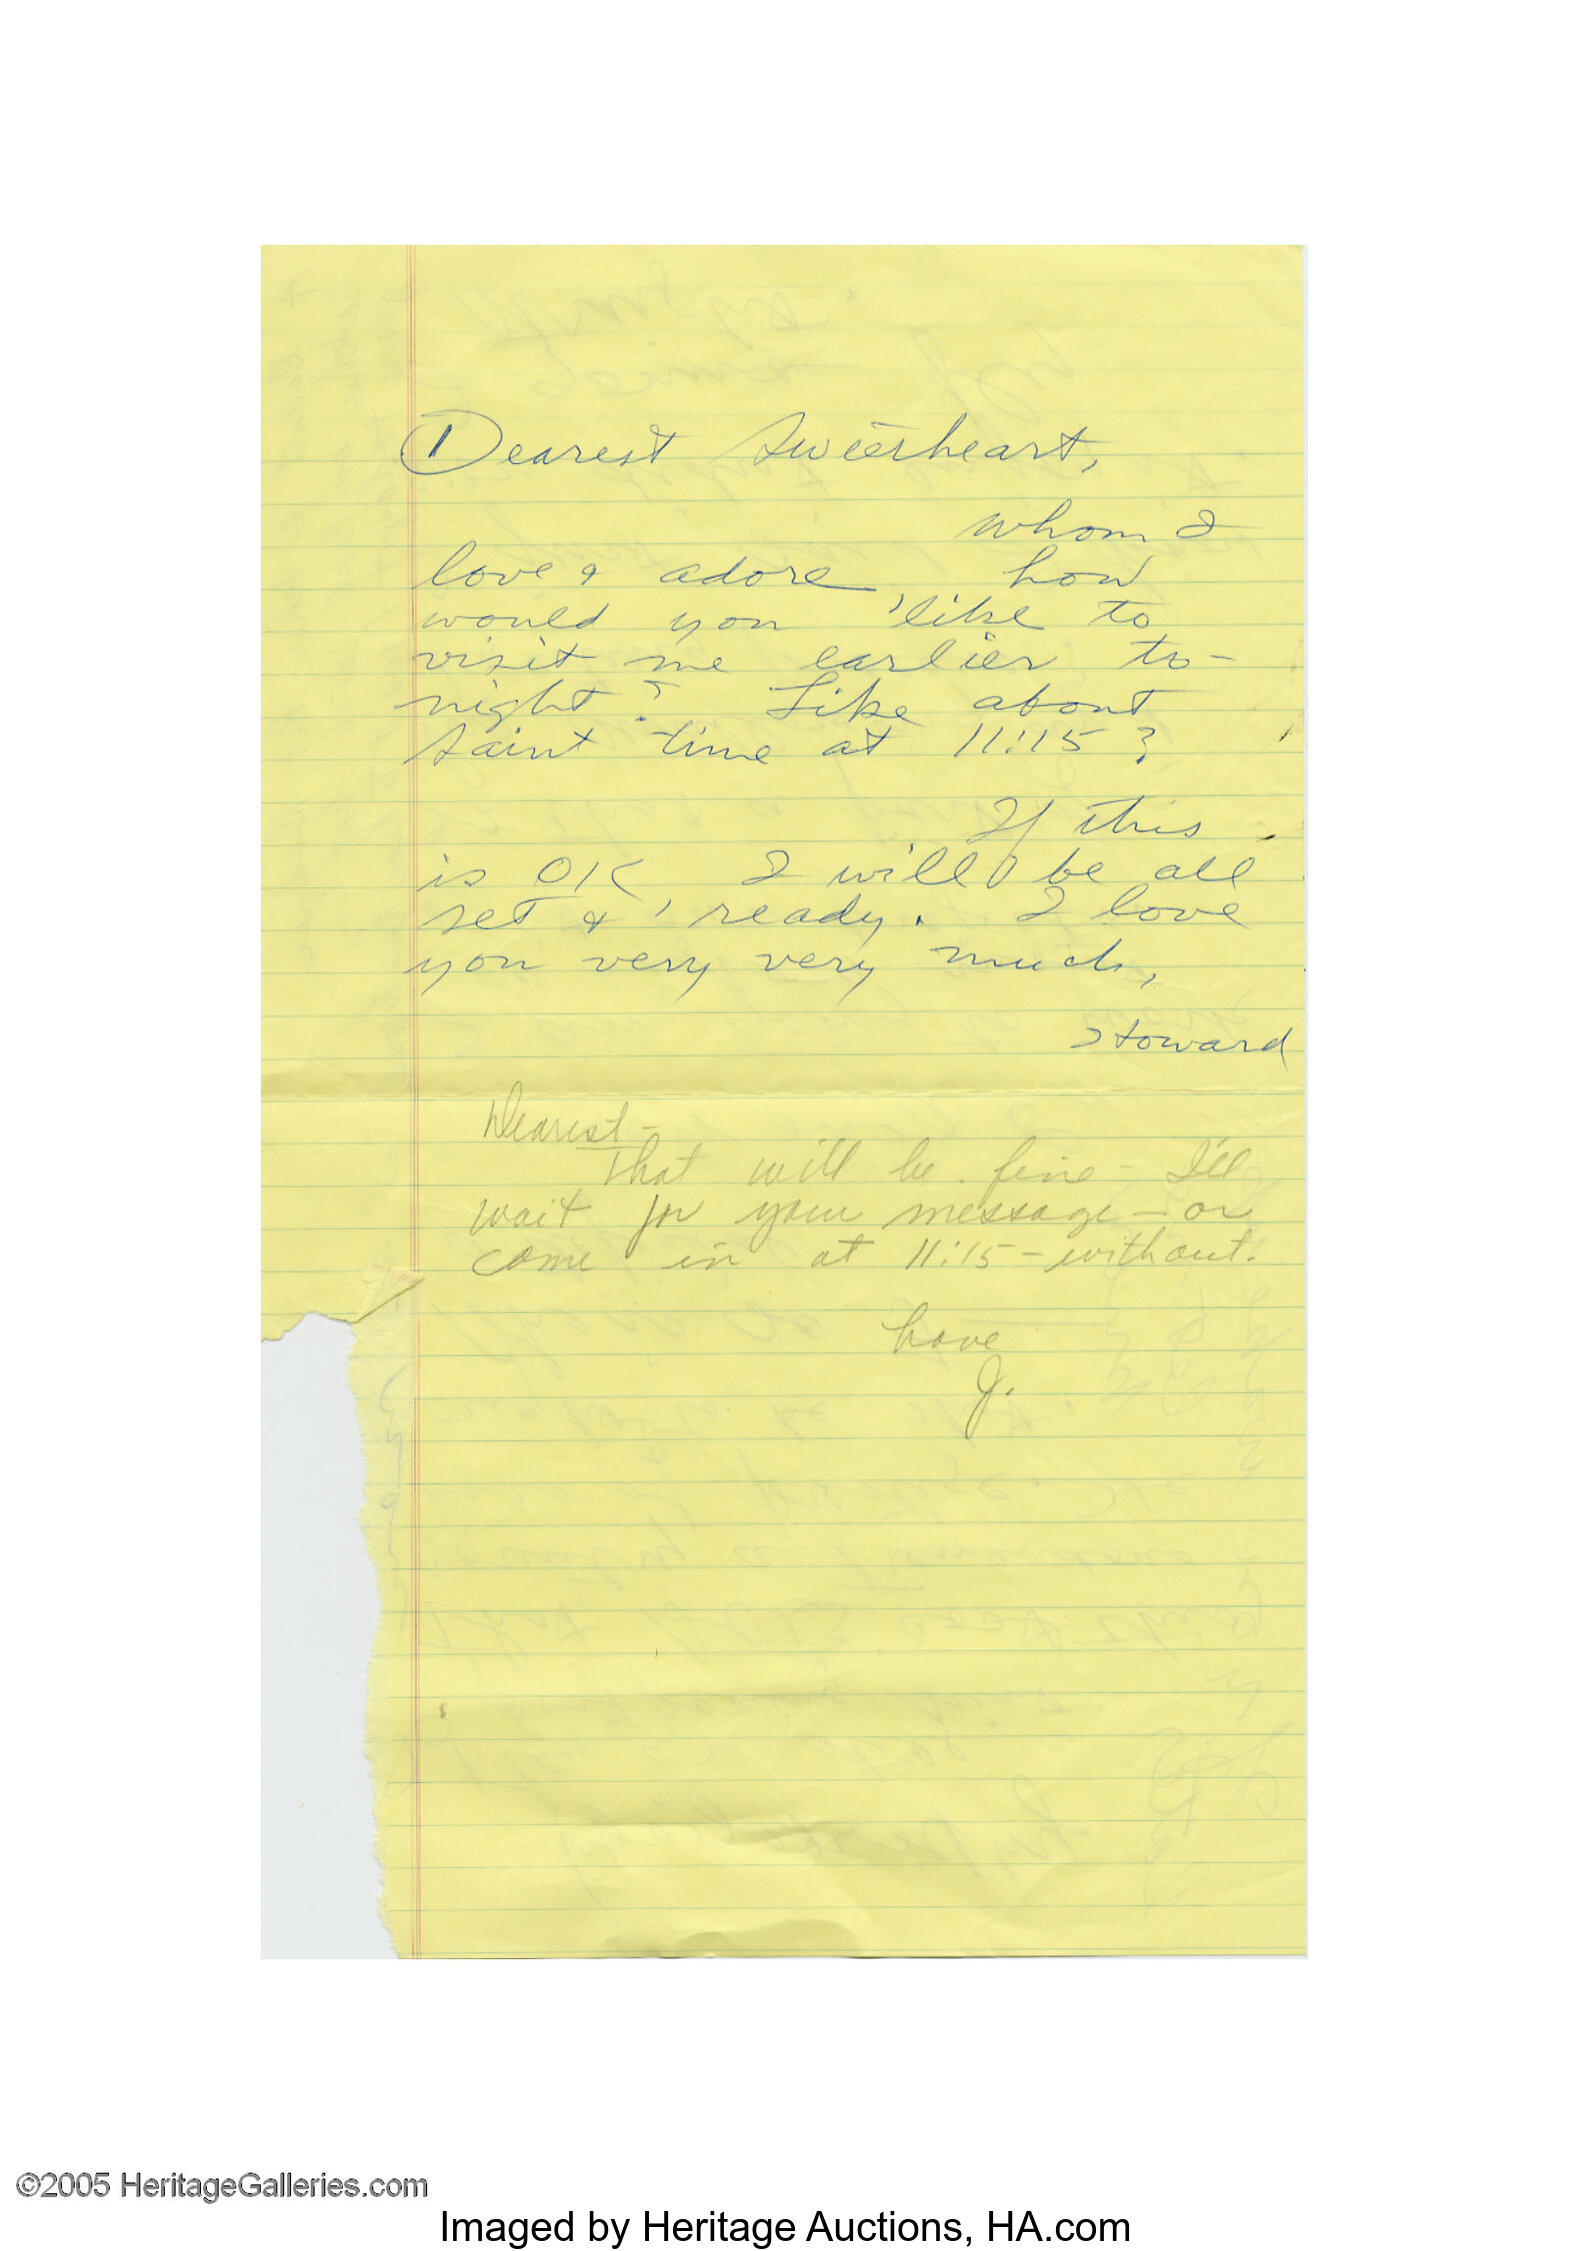 Dearest Sweetheart,
whom I
love & adore, how
would you like to
visit me earlier to-
night? Like about
saint time at 11:15?
If this
is OK, I will be all
set & ready. I love
you very very much,
Howard
Dearest-
That will be fine - I'll
wait for your message - or
come in at 11:15 - without.
Love
J.
©2005 HeritageGalleries.com
Imaged by Heritage Auctions, HA.com